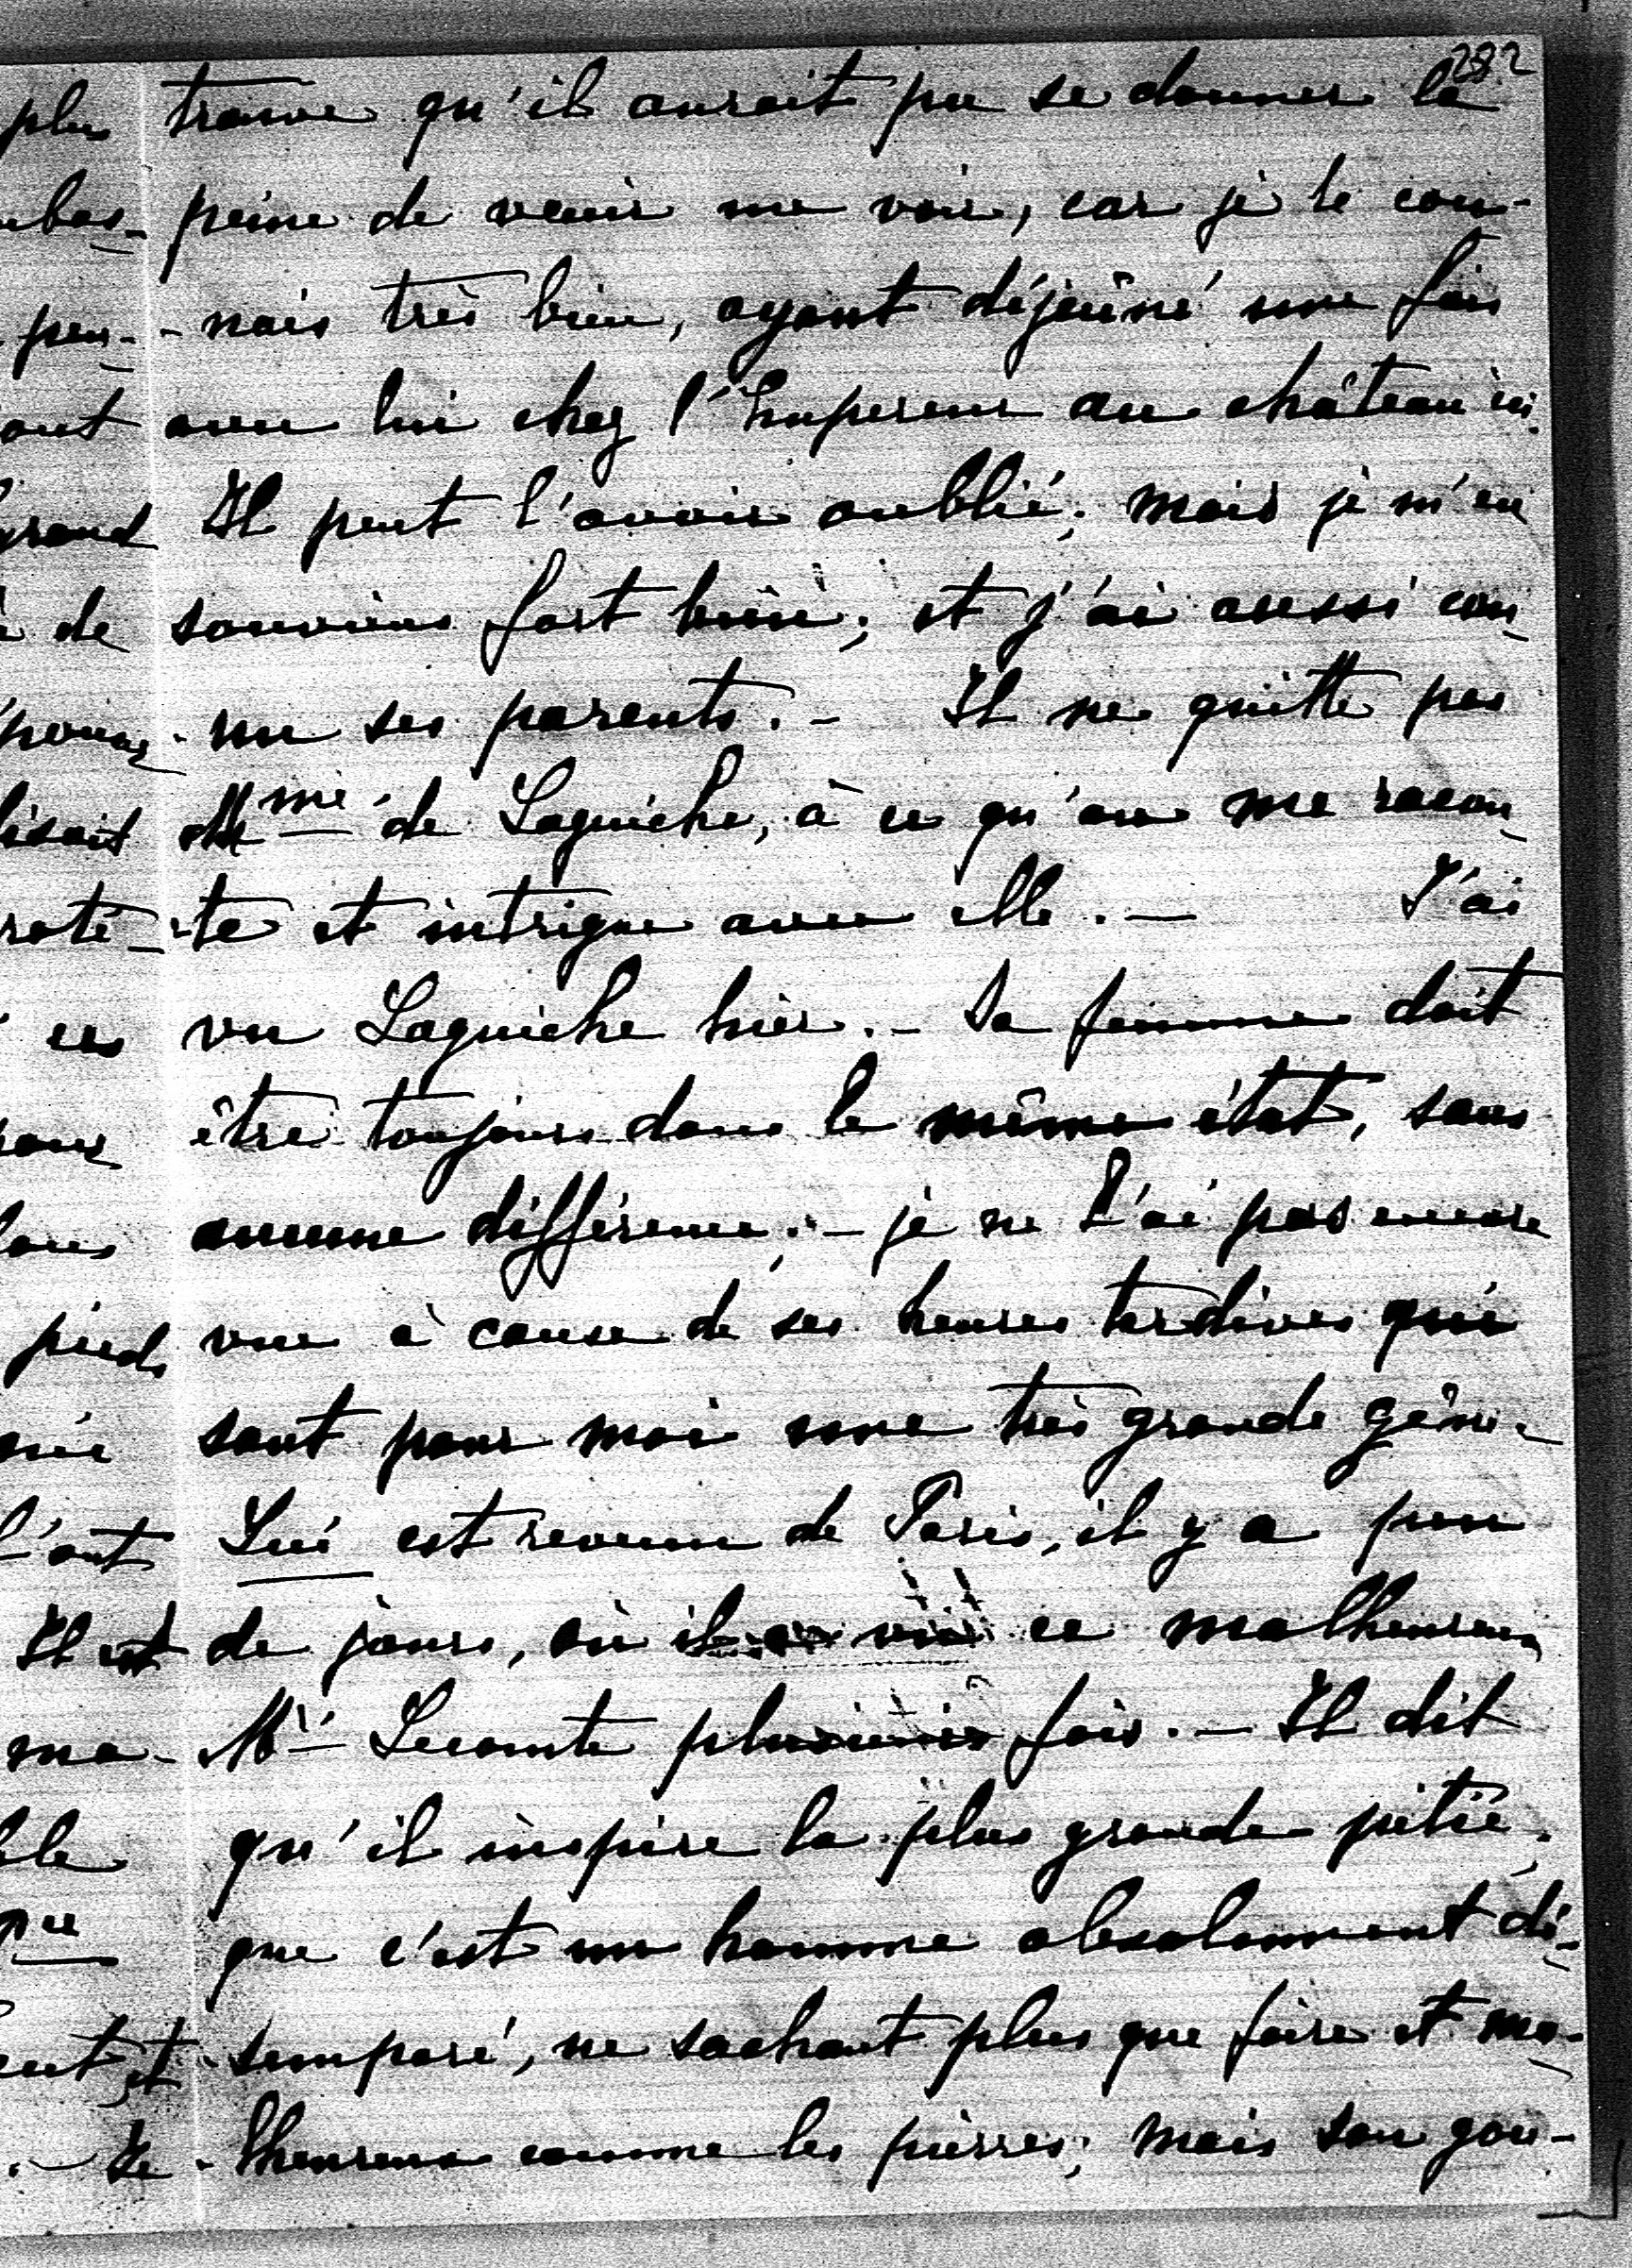 282
plus trouve qu'il aurait pu se donner la
peine de venir me voir, car je le con-
-nais très bien, ayant déjeûné une fois
avec lui chez l'Empereur au château ici.
grand Il peut l'avoir oublié; mais je m'en
de souviens fort bien; et j'ai aussi con-
-nu ses parents. - Il ne quitte pas
disait Mme de Laguiche, à ce qu'on me racon-
-te et intrigue avec elle. - J'ai
ces vu Laguiche hier. - Sa femme doit
être toujours dans le même état, sans
aucune différence; - je ne l'ai pas encore
pieds vue à cause de ses heures tardives qui
sont pour moi une très grande gêne.
l'ont Lui est revenu de Paris, il y a peu
Il est de jours, où il a vu ce malheureux
ma- Mr Lecomte plusieurs fois. - Il dit
qu'il inspire la plus grande pitié,
que c'est un homme absolument dé-
et -semparé, ne sachant plus que faire et ma-
. - Je -lheureux comme les pierres; mais son gou-